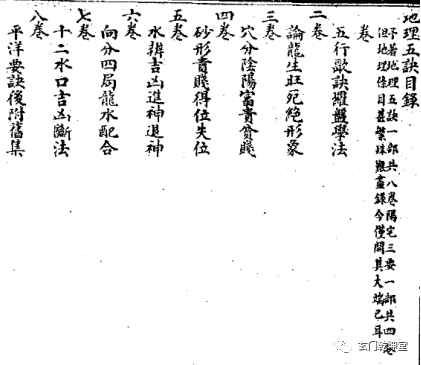 地理五訣目錄
予著地理五訣一部共八卷陽宅三要一部共四卷
但地理條目甚繁殊難盡錄今僅開其大端已耳
卷
五行歌訣羅盤學法
二卷
論龍生旺死絕形象
三卷
穴分陰陽富貴貧賤
四卷
砂形貴賤得位失位
五卷
水辨吉凶進神退神
六卷
向分四局龍水配合
七卷
十二水口吉凶斷法
八卷
平洋要訣後附舊集
玄门乾坤堂